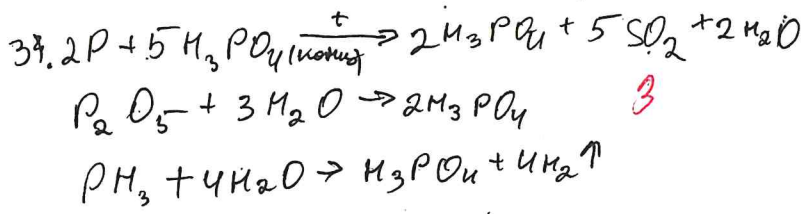 34. 2P + 5H₃PO₄(конц) →ᵗ 2H₃PO₄ + 5SO₂ + 2H₂O
P₂O₅ + 3H₂O → 2H₃PO₄ 3
PH₃ + 4H₂O → H₃PO₄ + 4H₂↑